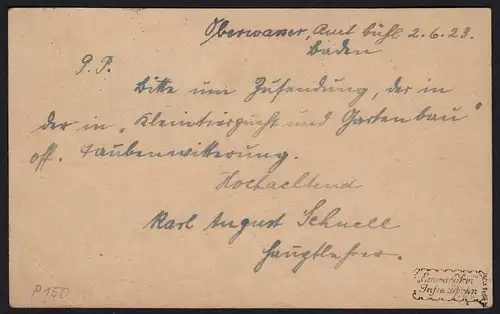 Oberwasser, Amt Bühl 2.6.23.
Baden
P. P.
Bitte um Zusendung, der in
der in „Kleintierzucht und Gartenbau"
off. Taubenwitterung.
Hochachtend
Karl August Schnell
Hauptlehrer.
P 150
Infla Berlin